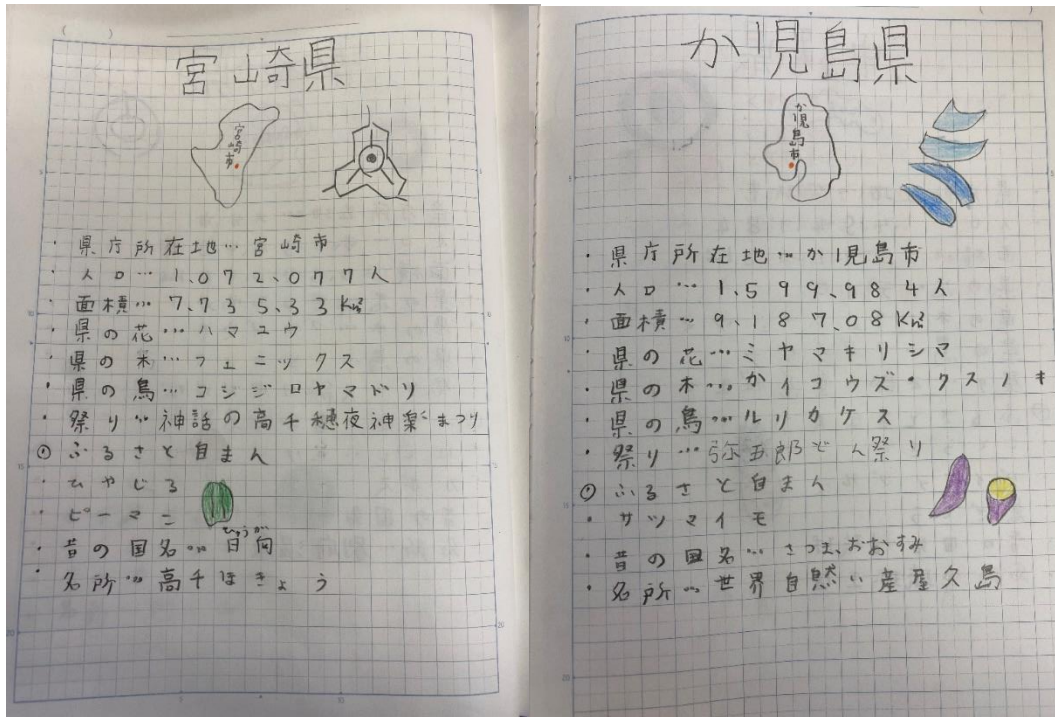 宮崎県
宮崎市
・県庁所在地…宮崎市
・人口…1.072.077人
・面積…7.735.33Km²
・県の花…ハマユウ
・県の木…フェニックス
・県の鳥…コシジロヤマドリ
・祭り…神話の高千穂夜神楽まつり
◎ふるさと自まん
・ひやじる
・ピーマン
・昔の国名…日向
ひゅうが
・名所…高千ほきょう
か児島県
か児島市
・県庁所在地…か児島市
・人口…1.599.984人
・面積…9.187.08Km²
・県の花…ミヤマキリシマ
・県の木…かイコウズ・クスノキ
・県の鳥…ルリカケス
・祭り…弥五郎どん祭り
◎ふるさと自まん
・サツマイモ
・昔の国名…さつま、おおすみ
・名所…世界自然い産屋久島